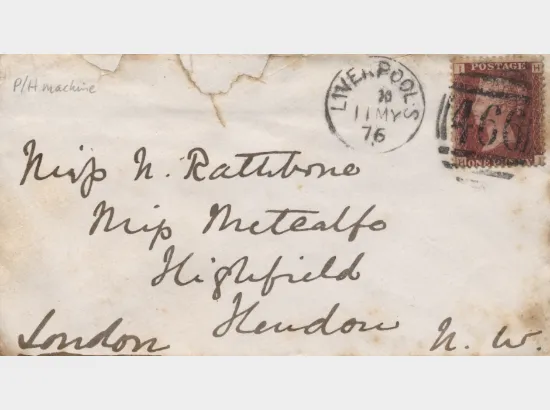 P/H machine
LIVERPOOL.S
11 MY
76
I H
POSTAGE
466
ONE PENNY
Miss N. Rathbone
Miss Metcalfe
Highfield
Hendon
London N. W.